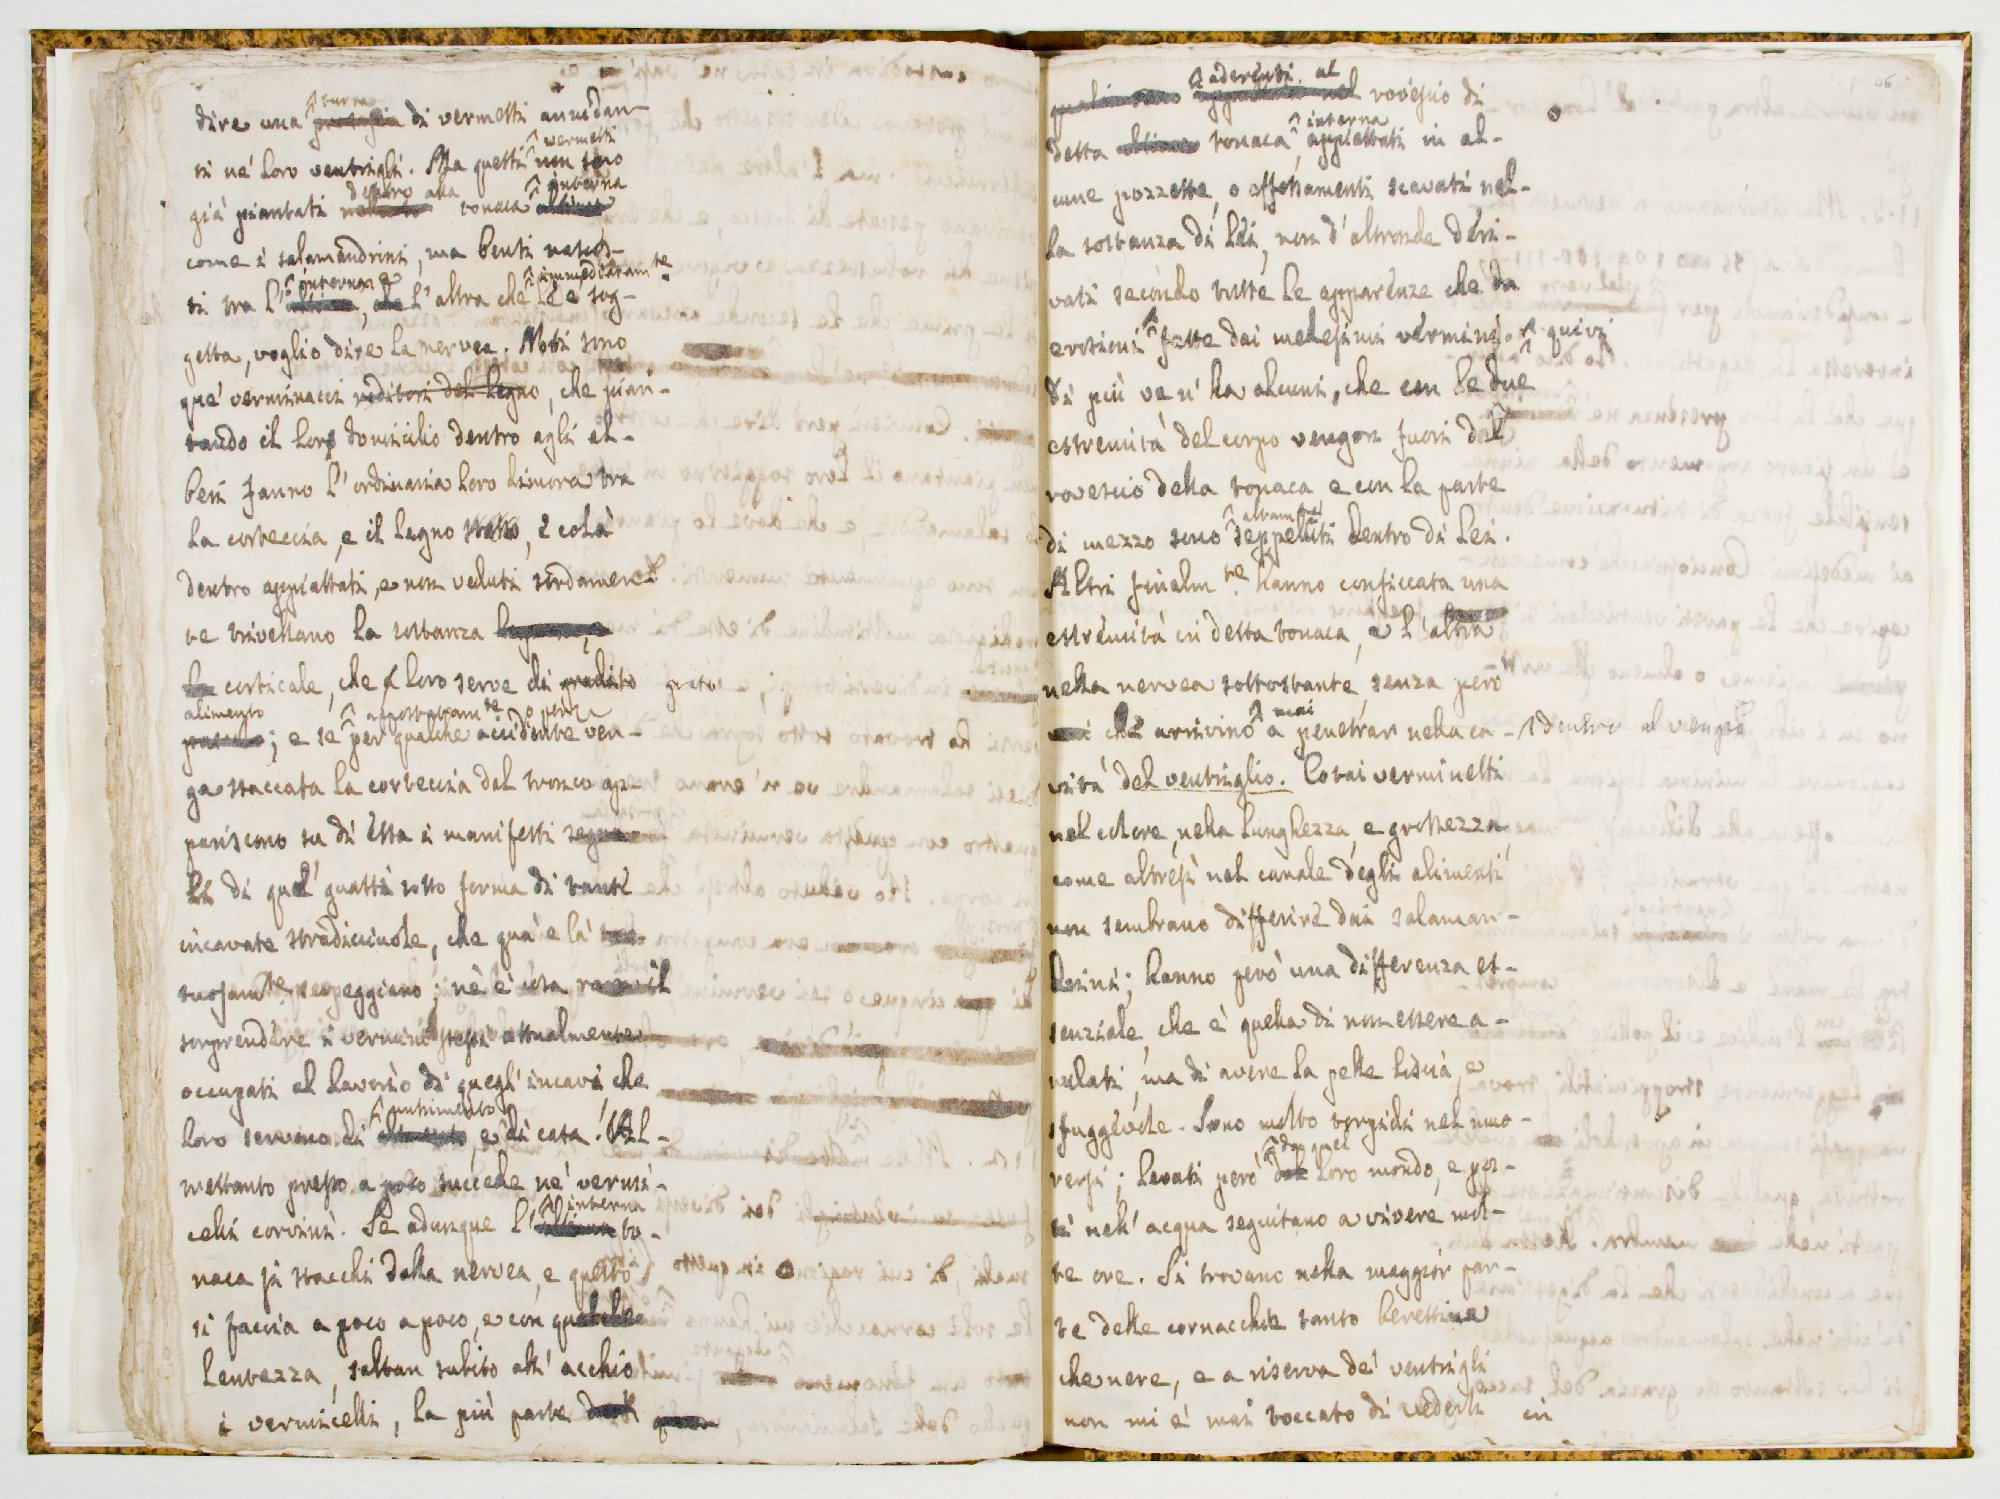 dire una turba di vermetti annidan-
ti ne' loro ventrigli. Ma questi vermetti non sono
già piantati dentro alla tonaca interna
come i salamandrini, ma bensì nascos-
ti tra l'interna, e l'altra che immediatam.te le è sog-
getta, voglio dire la nervea. Noti sono
que' verminacci roditori del legno, che pian-
tando il loro domicilio dentro agli al-
beri fanno l'ordinaria loro dimora tra
la corteccia, e il legno, e colà
dentro appiattati, e non veduti sordamen-
te trivellano la sostanza
corticale, che loro serve di grato
alimento; e se appostatam.te o per qualche accidente ven-
ga staccata la corteccia dal tronco ap-
pariscono su di essa i manifesti segna-
li di que' guasti sotto forma di tante
incavate stradicciuole, che quà e là
tuosam.te serpeggiano; nè è cosa il
sorprendere i vermini stessi attualmente
occupati al lavorio di quegli incavi che
loro servono di nutrimento, e di casa. Al-
trettanto presso a poco succede ne' vermi-
celli corvini. Se adunque l'interna to-
naca si stacchi dalla nervea, e questo
si faccia a poco a poco, e con qualche
lentezza, saltan subito all'occhio
i vermicelli, la più parte
aderenti al rovescio di
detta tonaca interna, appiattati in al-
cune pozzette, o affossamenti scavati nel-
la sostanza di lei, non d'altronde deri-
vati secondo tutte le apparenze che da
erosioni quivi fatte dai medesimi vermini.
Di più ve n'ha alcuni, che con le due
estremità del corpo vengon fuori dal
rovescio della tonaca, e con la parte
di mezzo sono altam.te seppelliti dentro di lei.
Altri finalm.te hanno conficcata una
estremità in detta tonaca, e l'altra
nella nervea sottostante, senza però
che arrivino mai a penetrar nella ca- dentro al ventri
vità del ventriglio. Cotai verminetti
nel colore, nella lunghezza, e grossezza,
come altresì nel canale degli alimenti
non sembrano differire dai salaman-
drini; hanno però una differenza es-
senziale, che è quella di non essere a-
nulati, ma di avere la pelle liscia, e
sfuggevole. Sono molto torpidi nel muo-
versi; levati però da quel loro mondo, e pos-
ti nell'acqua seguitano a vivere mol-
te ore. Si trovano nella maggior par-
te delle cornacchie tanto berettine
che nere, e a riserva de' ventrigli
non mi è mai toccato di vederli in